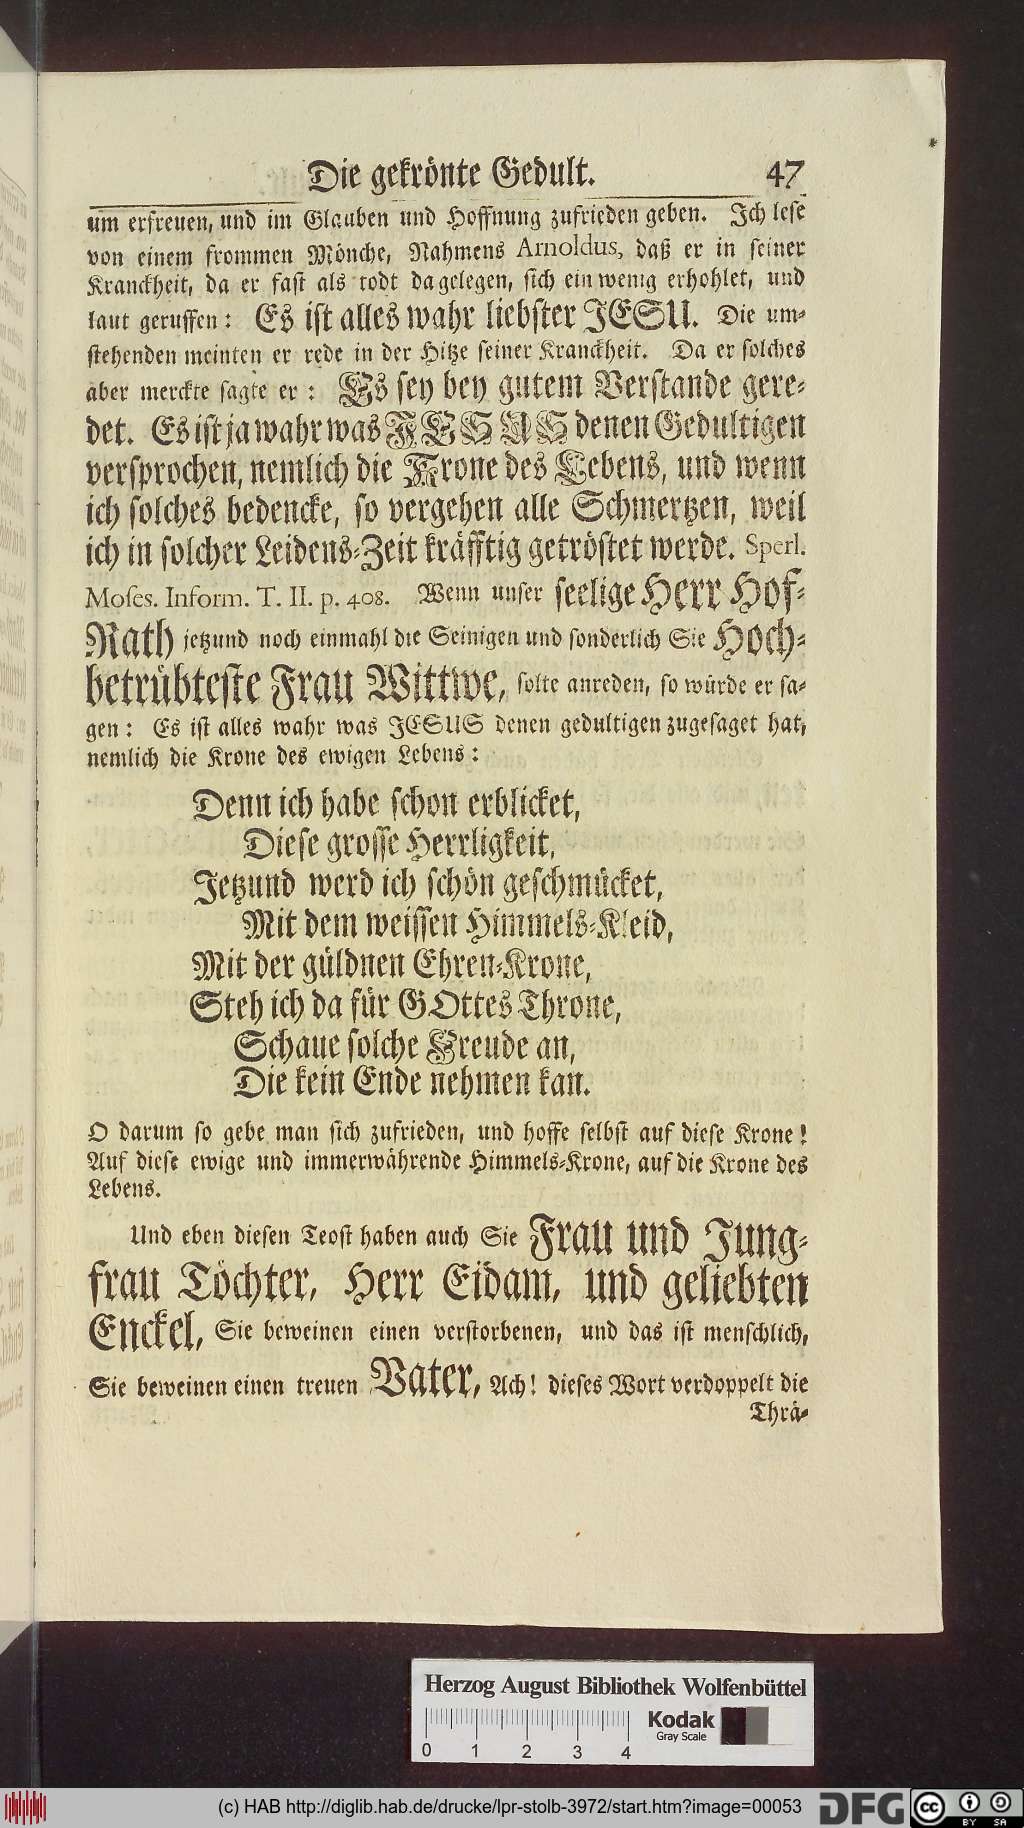 Die gekrönte Gedult. 47
um erfreuen, und im Glauben und Hoffnung zufrieden geben. Ich lese
von einem frommen Mönche, Nahmens Arnoldus, daß er in seiner
Kranckheit, da er fast als todt dagelegen, sich ein wenig erhohlet, und
laut geruffen: Es ist alles wahr liebster JESU. Die um-
stehenden meinten er rede in der Hitze seiner Kranckheit. Da er solches
aber merckte sagte er: Es sey bey gutem Verstande gere-
det. Es ist ja wahr was JESUS denen Gedultigen
versprochen, nemlich die Krone des Lebens, und wenn
ich solches bedencke, so vergehen alle Schmertzen, weil
ich in solcher Leidens-Zeit kräfftig getröstet werde. Sperl.
Moses. Inform. T. II. p. 408. Wenn unser seelige Herr Hof-
Rath jetzund noch einmahl die Seinigen und sonderlich Sie Hoch-
betrübteste Frau Wittwe, solte anreden, so würde er sa-
gen: Es ist alles wahr was JESUS denen gedultigen zugesaget hat,
nemlich die Krone des ewigen Lebens:
Denn ich habe schon erblicket,
Diese grosse Herrligkeit,
Jetzund werd ich schön geschmücket,
Mit dem weissen Himmels-Kleid,
Mit der güldnen Ehren-Krone,
Steh ich da für GOttes Throne,
Schaue solche Freude an,
Die kein Ende nehmen kan.
O darum so gebe man sich zufrieden, und hoffe selbst auf diese Krone!
Auf diese ewige und immerwährende Himmels-Krone, auf die Krone des
Lebens.
Und eben diesen Teost haben auch Sie Frau und Jung-
frau Töchter, Herr Eidam, und geliebten
Enckel, Sie beweinen einen verstorbenen, und das ist menschlich,
Sie beweinen einen treuen Vater, Ach! dieses Wort verdoppelt die
Thrä-
Herzog August Bibliothek Wolfenbüttel
Kodak
Gray Scale
0 1 2 3 4
(c) HAB http://diglib.hab.de/drucke/lpr-stolb-3972/start.htm?image=00053
DFG cc BY SA